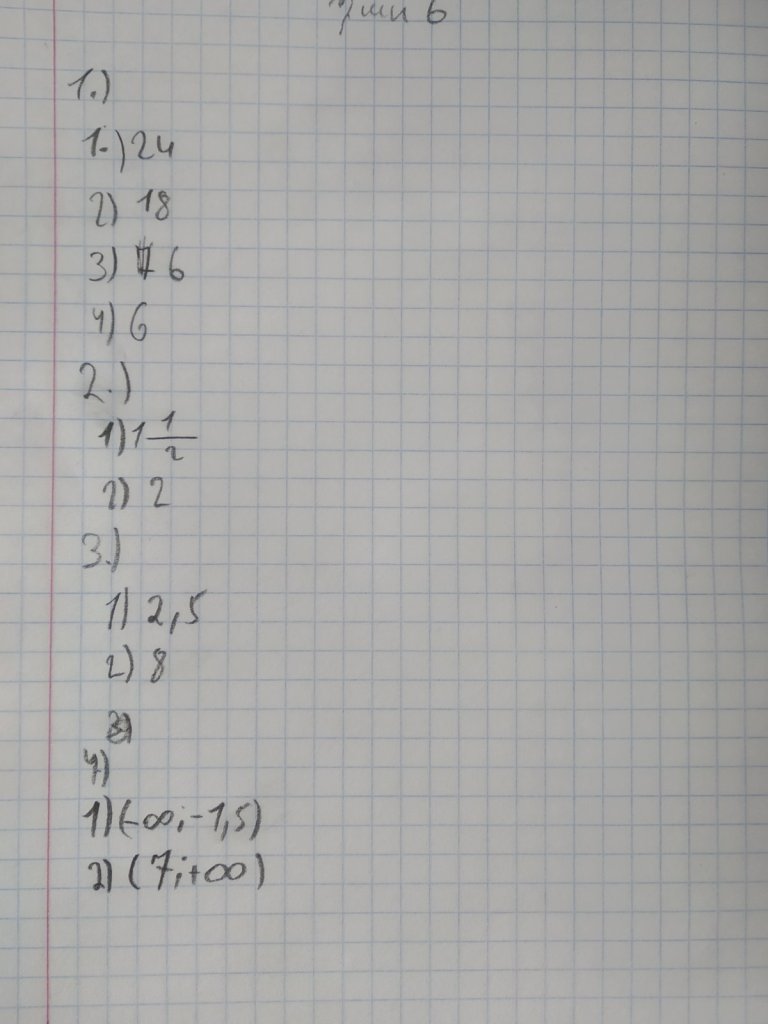 6
1.)
1.) 24
2) 18
3) 6
4) 6
2.)
1) 1 1/2
2) 2
3.)
1) 2,5
2) 8
4)
1) (-∞; -1,5)
2) (7; +∞)